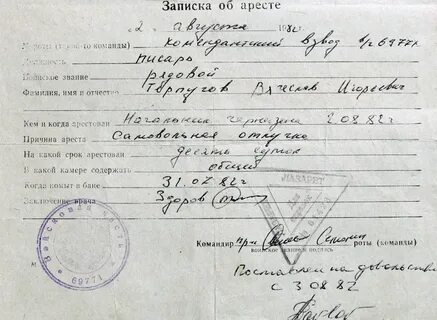 Записка об аресте
2 августа 1982 г.
роты (команды) Комендантский взвод в/ч 69771
Должность писарь
Воинское звание рядовой
Фамилия, имя и отчество Терпугов Вячеслав Игоревич
Кем и когда арестован Начальник гарнизона 2 08 82 г
Причина ареста Самовольная отлучка
На какой срок арестован десять суток
В какой камере содержать общей
Когда мыт в бане 31.07.82 г
Заключение врача Здоров
ЛАЗАРЕТ
Войсковая часть
69771
Командир роты (команды)
воинское звание подпись
Поставлен на довольствие
с 3 08 82